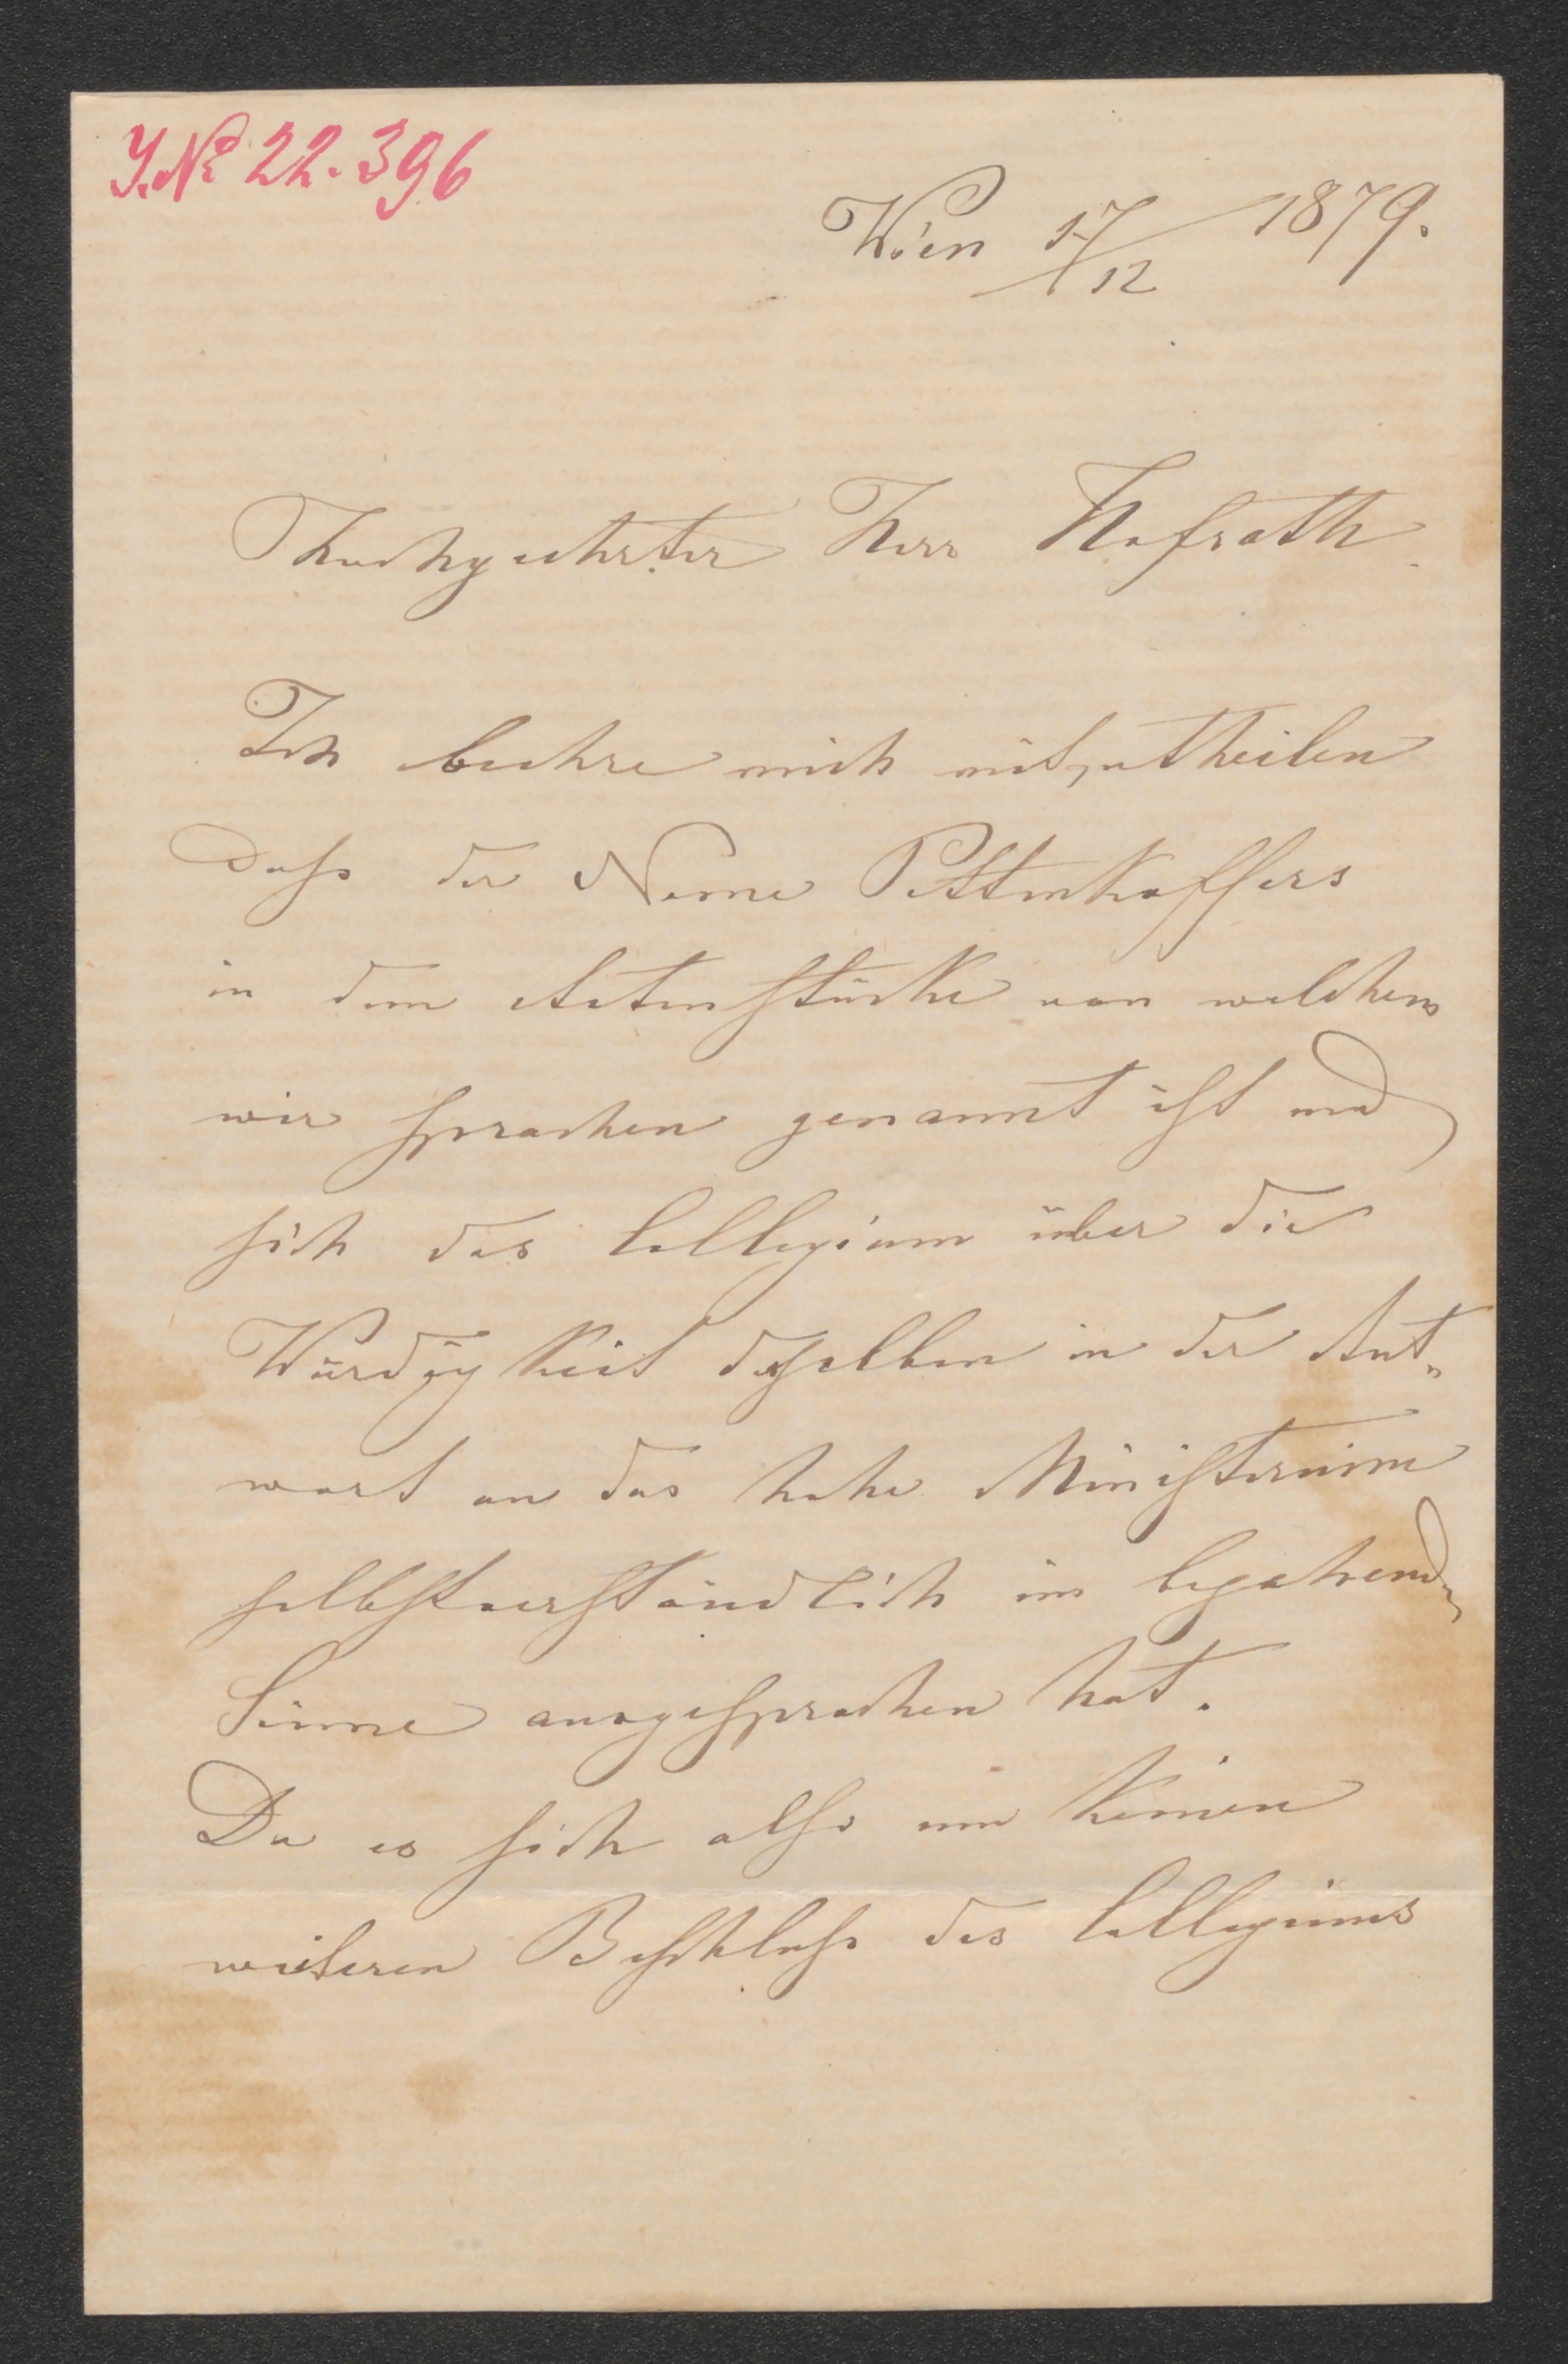 J.№ 22.396
Wien 17/12 1879.
Hochgeehrter Herr Hofrath
Ich beehre mich mitzutheilen
dass der Name Pettenkoffers
in dem Actenstücke von welchem
wir sprachen genannt ist und
sich das Collegium über die
Würdigkeit desselben in der Ant„
wort an das hohe Ministerium
selbstverständlich im bejahenden
Sinne ausgesprochen hat.
Da es sich also um keinen
weiteren Beschluss des Collegiums